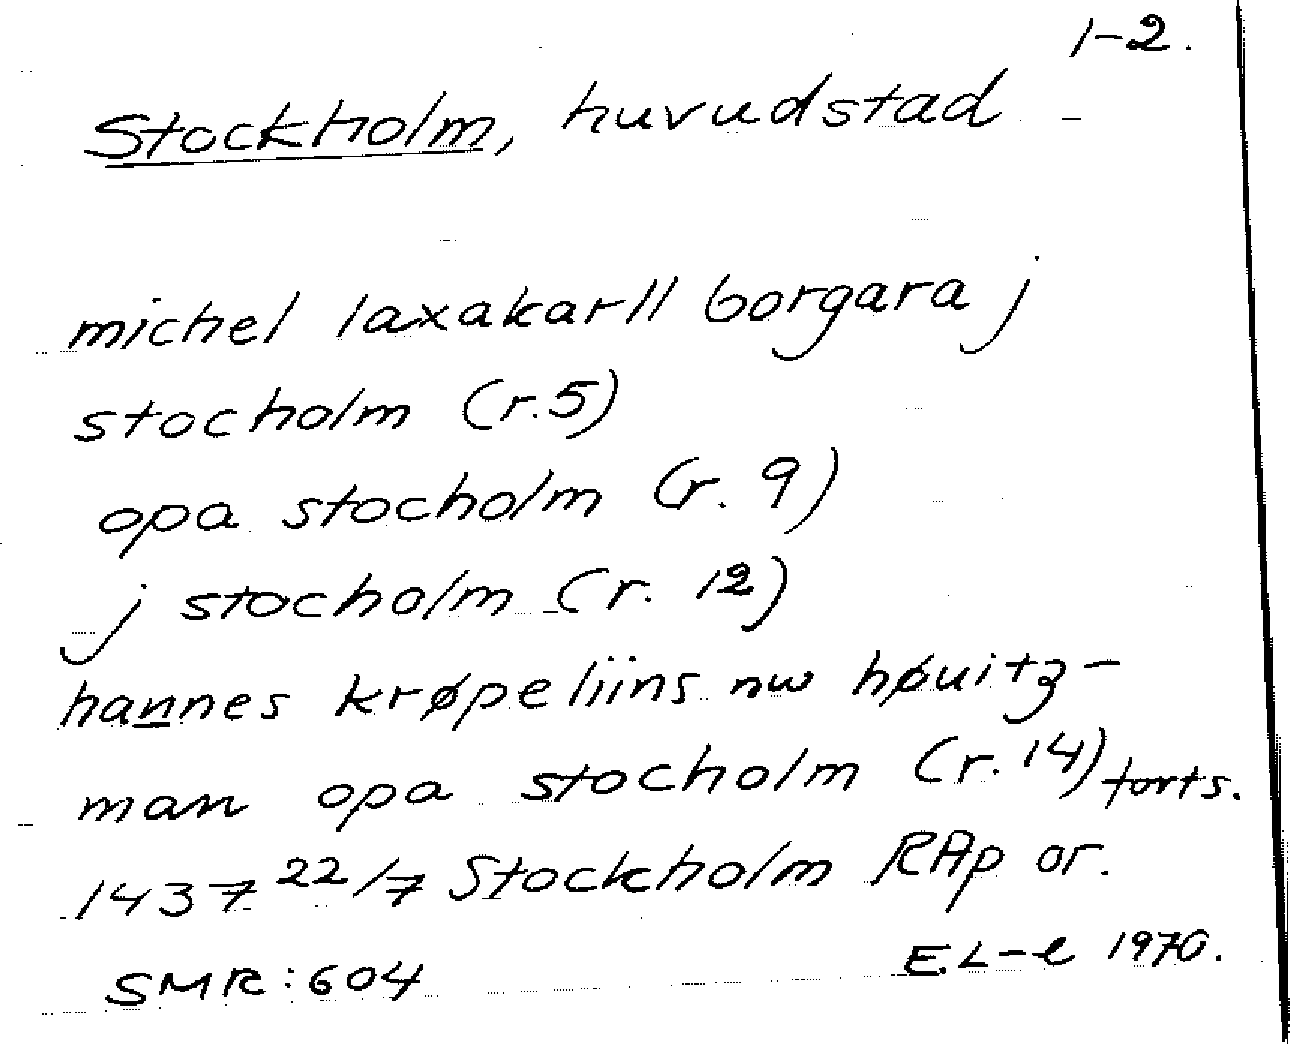 1-2.
Stockholm, huvudstad -
michel laxakarll borgara j
stocholm (r.5)
opa stocholm (r. 9)
j stocholm (r. 12)
hannes krøpeliins nw høuitz-
man opa stocholm (r. 14) forts.
1437 22/7 Stockholm RAp or.
SMR: 604 E.L-e 1970.